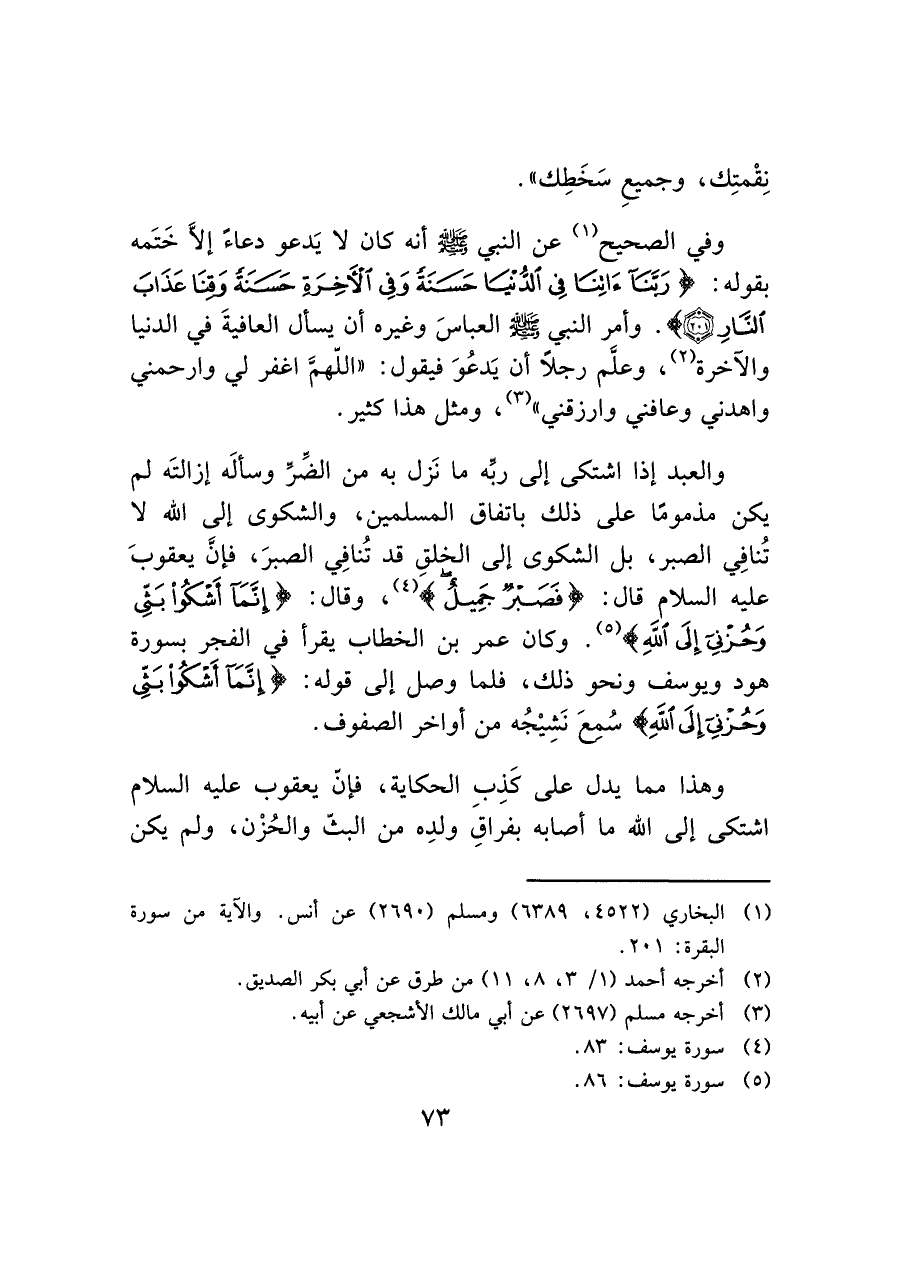 نِقْمتِك، وجميعِ سَخَطِك».
وفي الصحيح(١) عن النبي ﷺ أنه كان لا يَدعو دعاءً إلاَّ خَتَمه
بقوله: ﴿ رَبَّنَآ ءَاتِنَا فِى ٱلدُّنْيَا حَسَنَةً وَفِى ٱلْأَخِرَةِ حَسَنَةً وَقِنَا عَذَابَ
ٱلنَّارِ ۝٢٠١﴾. وأمر النبي ﷺ العباسَ وغيره أن يسأل العافيةَ في الدنيا
والآخرة(٢)، وعلَّم رجلاً أن يَدعُوَ فيقول: «اللّهمَّ اغفر لي وارحمني
واهدني وعافني وارزقني»(٣)، ومثل هذا كثير.
والعبد إذا اشتكى إلى ربِّه ما نَزل به من الضِّرِّ وسألَه إزالتَه لم
يكن مذمومًا على ذلك باتفاق المسلمين، والشكوى إلى الله لا
تُنافِي الصبر، بل الشكوى إلى الخلقِ قد تُنافِي الصبرَ، فإنَّ يعقوبَ
عليه السلام قال: ﴿فَصَبْرٌ جَمِيلٌ ۖ﴾(٤)، وقال: ﴿ إِنَّمَآ أَشْكُوا۟ بَثِّى
وَحُزْنِىٓ إِلَى ٱللَّهِ﴾(٥). وكان عمر بن الخطاب يقرأ في الفجر بسورة
هود ويوسف ونحو ذلك، فلما وصل إلى قوله: ﴿ إِنَّمَآ أَشْكُوا۟ بَثِّى
وَحُزْنِىٓ إِلَى ٱللَّهِ﴾ سُمِعَ نَشِيْجُه من أواخر الصفوف.
وهذا مما يدل على كَذِبِ الحكاية، فإنّ يعقوب عليه السلام
اشتكى إلى الله ما أصابه بفراقِ ولدِه من البثّ والحُزْن، ولم يكن
(١) البخاري (٤٥٢٢، ٦٣٨٩) ومسلم (٢٦٩٠) عن أنس. والآية من سورة
البقرة: ٢٠١.
(٢) أخرجه أحمد (١/ ٣، ٨، ١١) من طرق عن أبي بكر الصديق.
(٣) أخرجه مسلم (٢٦٩٧) عن أبي مالك الأشجعي عن أبيه.
(٤) سورة يوسف: ٨٣.
(٥) سورة يوسف: ٨٦.
٧٣